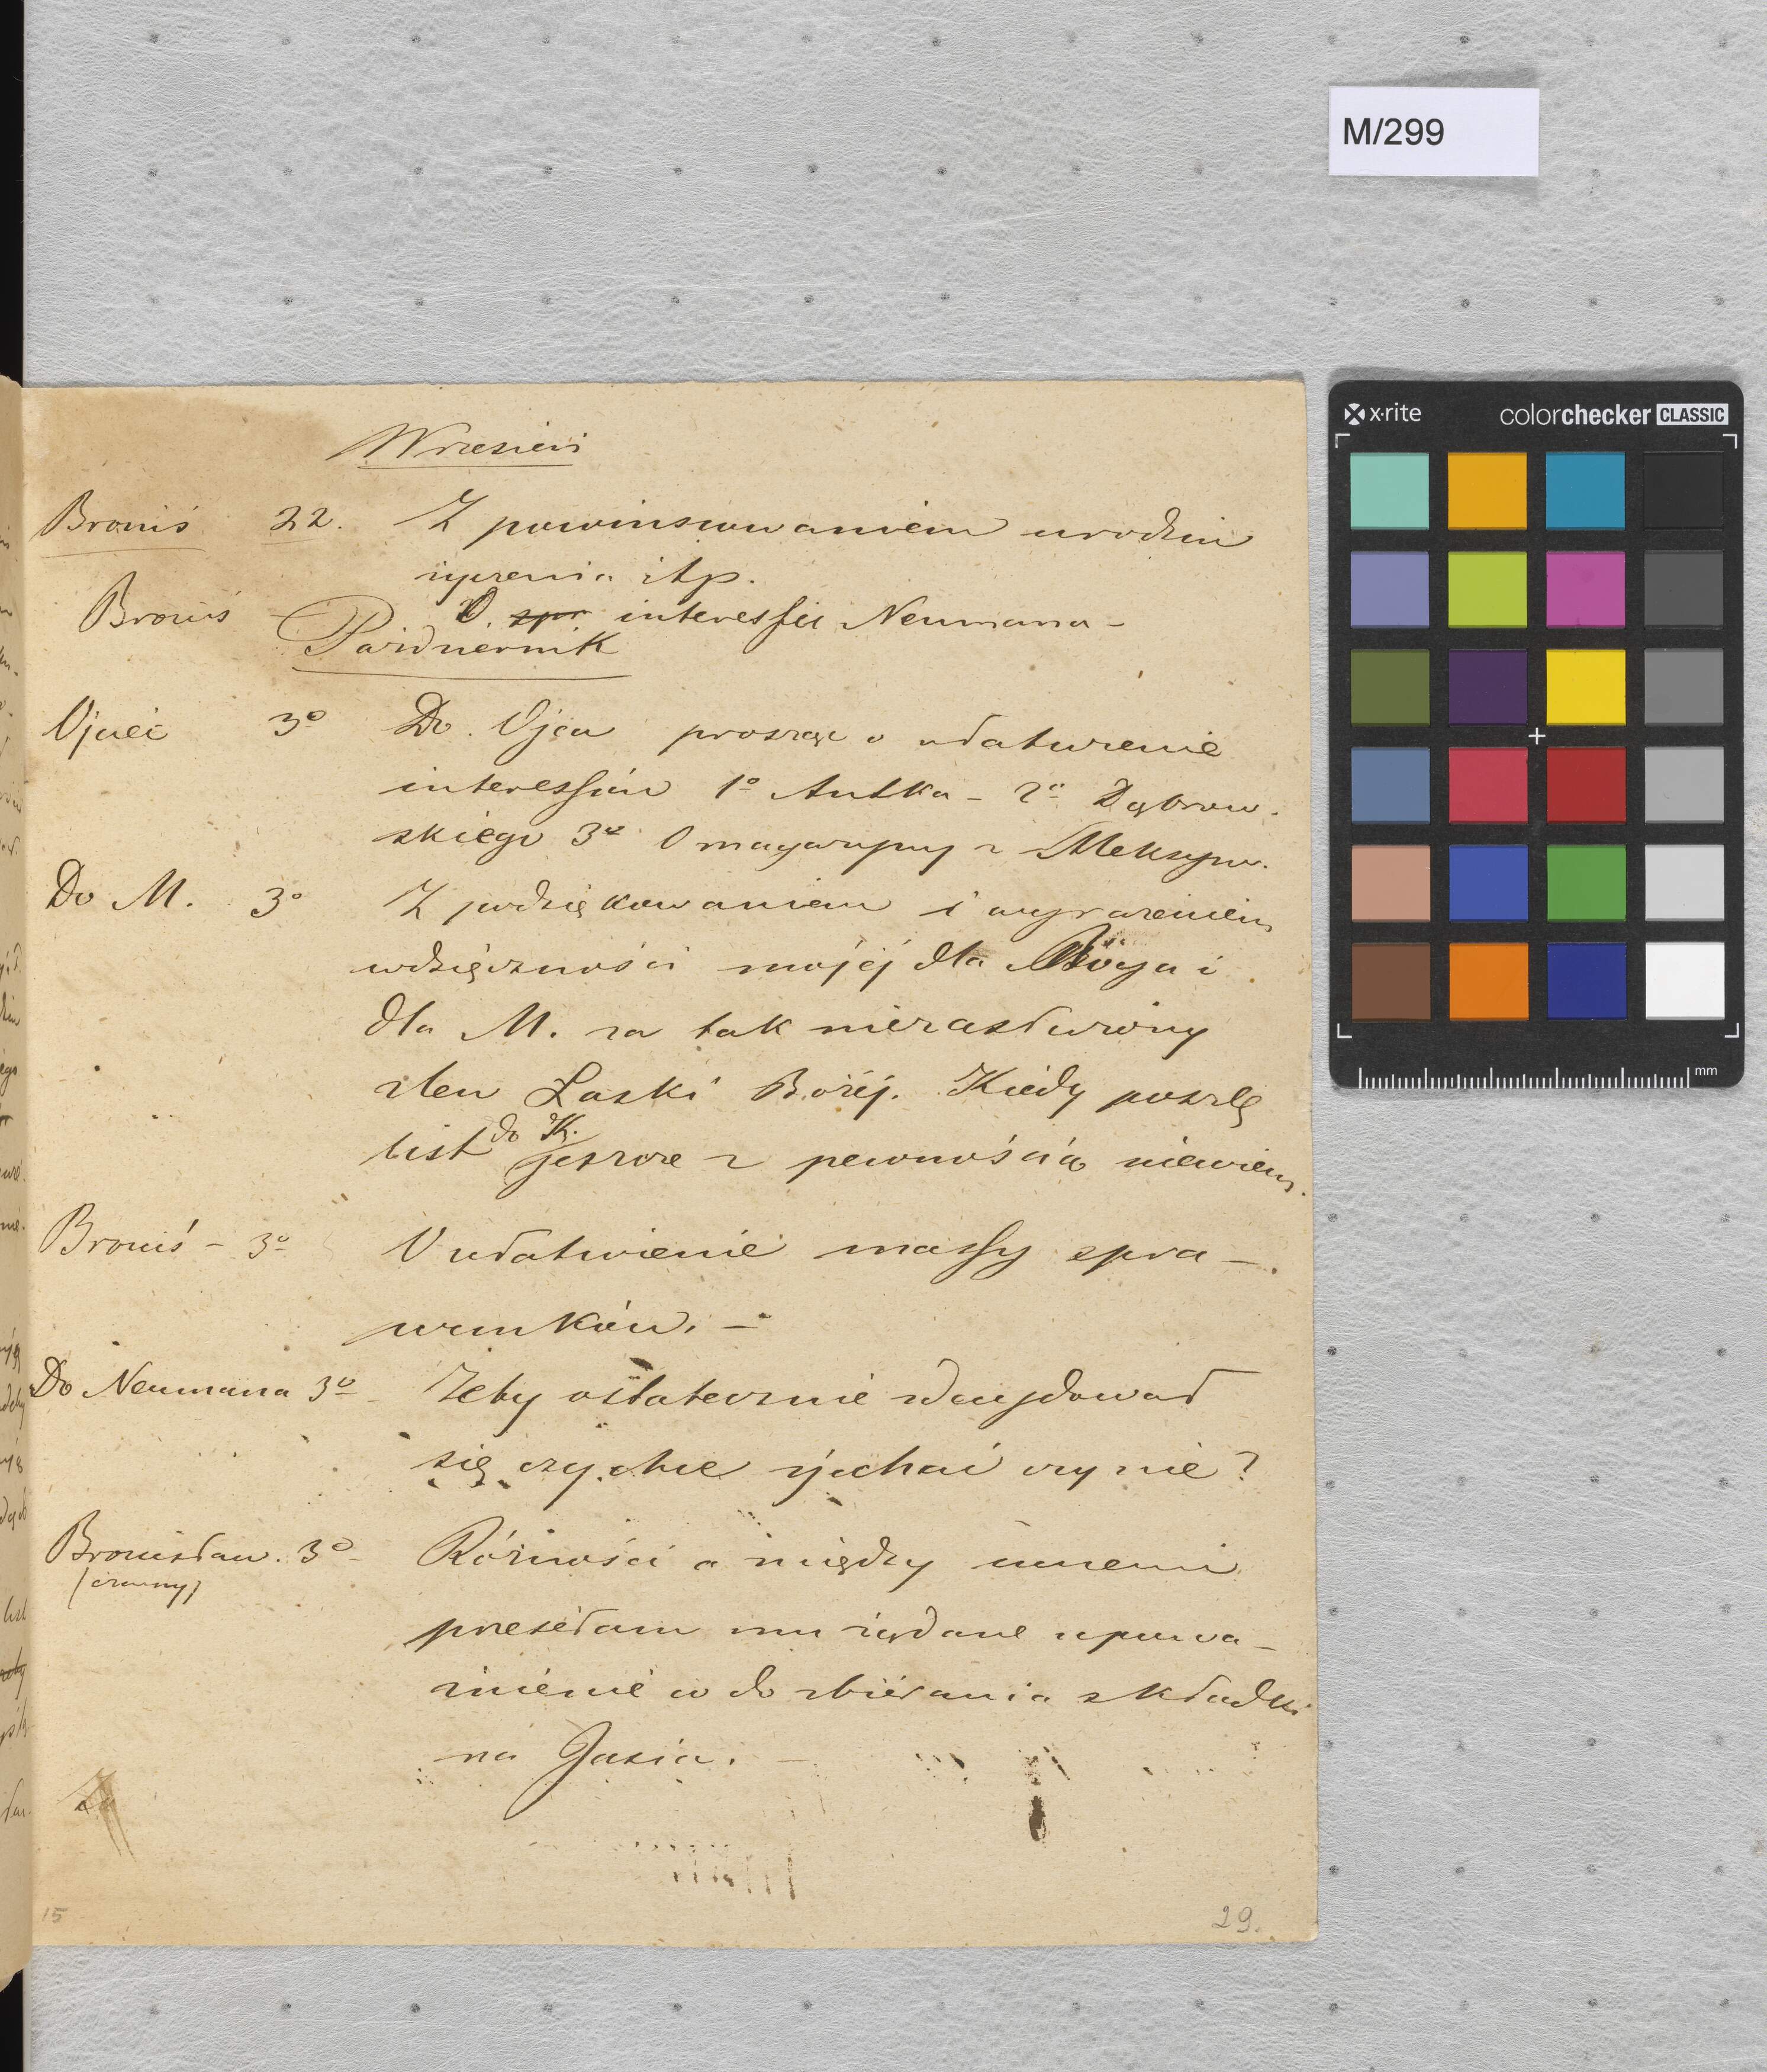 M/299
x·rite colorchecker CLASSIC
mm
Wrzesień
Broniś 22. Z powinszowaniem urodzin
życzenia itp.
Broniś – O. spr interessie Neumana –
Październik
Ojciec 3º Do Ojca proszę o ułatwienie
interessów 1º Antka – 2º Dąbrow-
skiego 3º O z Meksyku.
Do M. 3º Z podziękowaniem i wyrażeniem
wdzięczności mojéj dla Boga i
dla M. za tak niezasłużony
zlew Łaski Bożéj. Kiedy poszlę
list do K. jeszcze z pewnością niewiem.
Broniś – 3º O ułatwienie massy spra –
wunków. –
Do Neumana 3º – Żeby ostatecznie zdecydował
się czy chce jechać czy nie?
Bronisław. 3º – Różności a między innemi
(czarny)
przesełam mu żądane upowa –
żnienie do zbiérania składki
na Jasia. –
15
29.